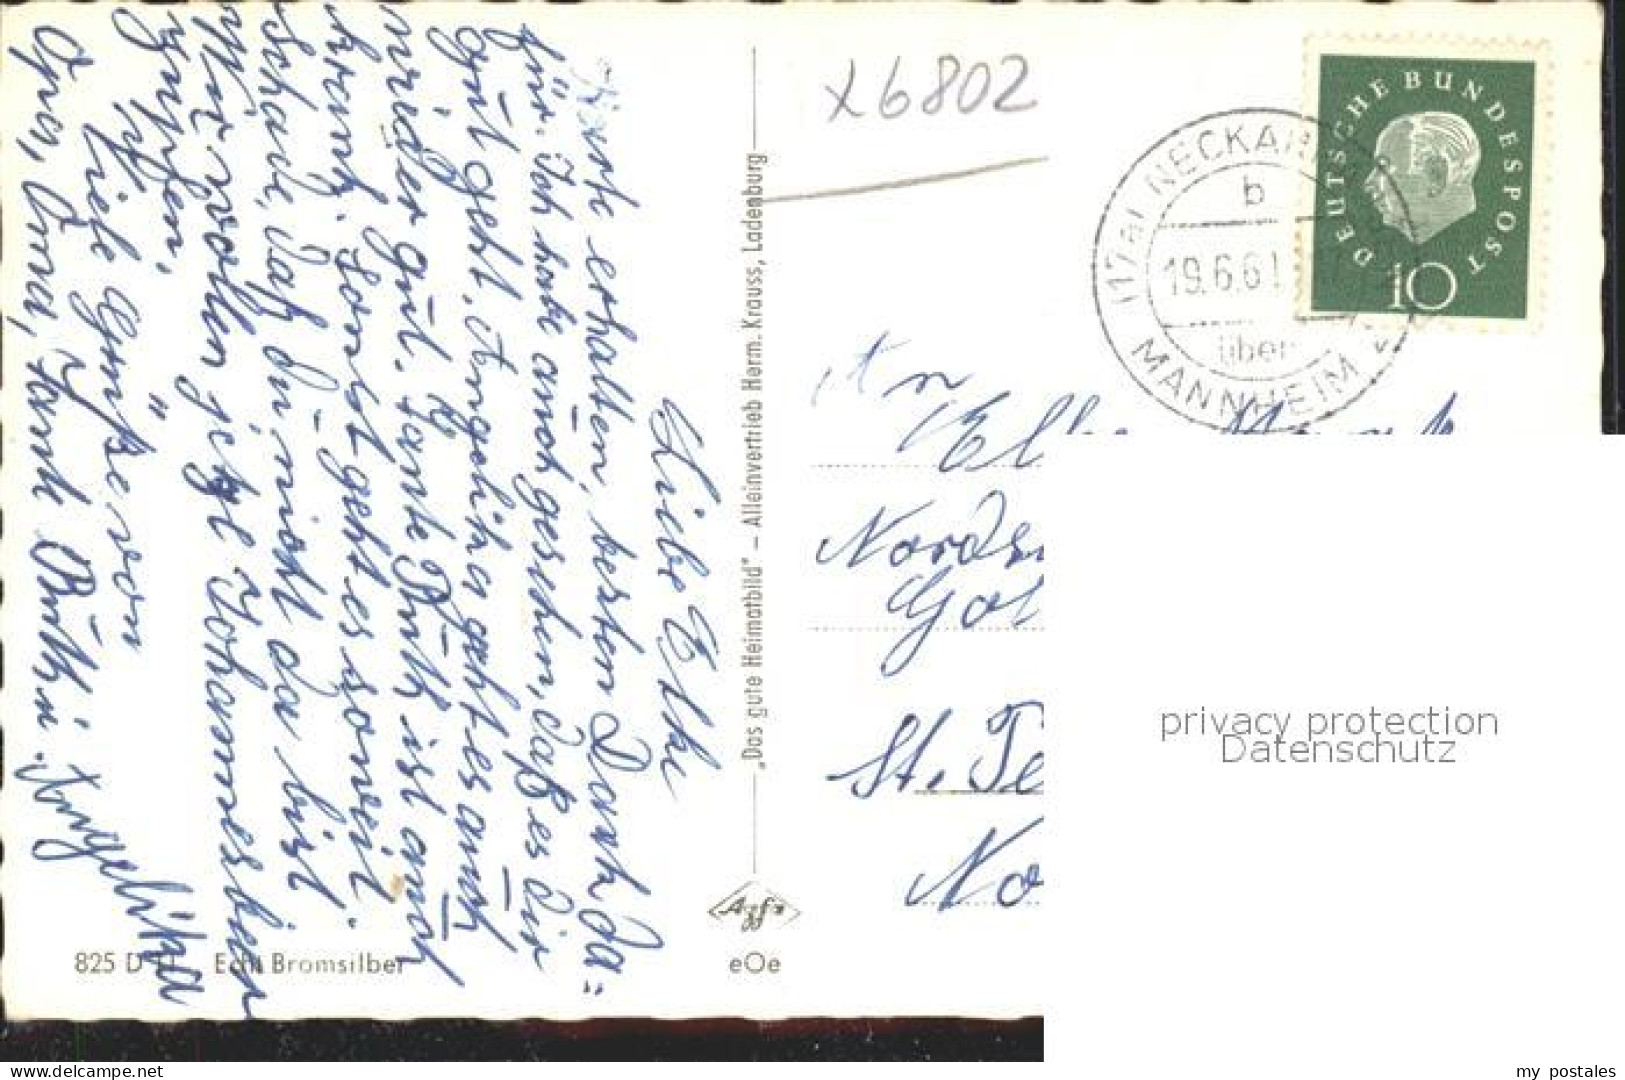 Liebe Elke
Karte erhalten, besten Dank da-
für. Ich habe auch gesehen, daß es dir
gut geht. Angelika geht es auch
wieder gut. Tante Ruth ist auch
krank. Sonst geht es soweit.
Schade, daß du nicht da bist.
Wir wollen jetzt Johannesbeeren
zupfen.
Viele Grüße von
Opa, Oma, Tante Ruth u. Angelika
825 D
Echt Bromsilber
„Das gute Heimatbild" – Alleinvertrieb Herm. Krauss, Ladenburg
Agfa
eOe
x6802
(17a) NECKAR
b
19.6.61
über
MANNHEIM 2
DEUTSCHE BUNDESPOST
10
An
Nords
St. Pe
No
privacy protection
Datenschutz
my postales
www.delcampe.net